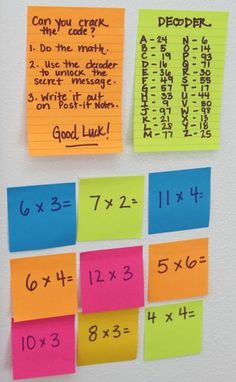 Can you crack
the code?
1. Do the math.
2. Use the decoder
to unlock the
secret message.
3. Write it out
on Post-it Notes.
Good Luck!
DECODER
A - 24 N - 6
B - 5 O - 14
C - 19 P - 93
D - 16 Q - 71
E - 36 R - 30
F - 49 S - 55
G - 57 T - 17
H - U - 44
I - 9 V - 80
J - 97 W - 98
K - X -
L - 28 Y - 18
M - 77 Z - 25
6 x 3 =
7 x 2 =
11 x 4 =
6 x 4 =
12 x 3
5 x 6 =
10 x 3
8 x 3 =
4 x 4 =